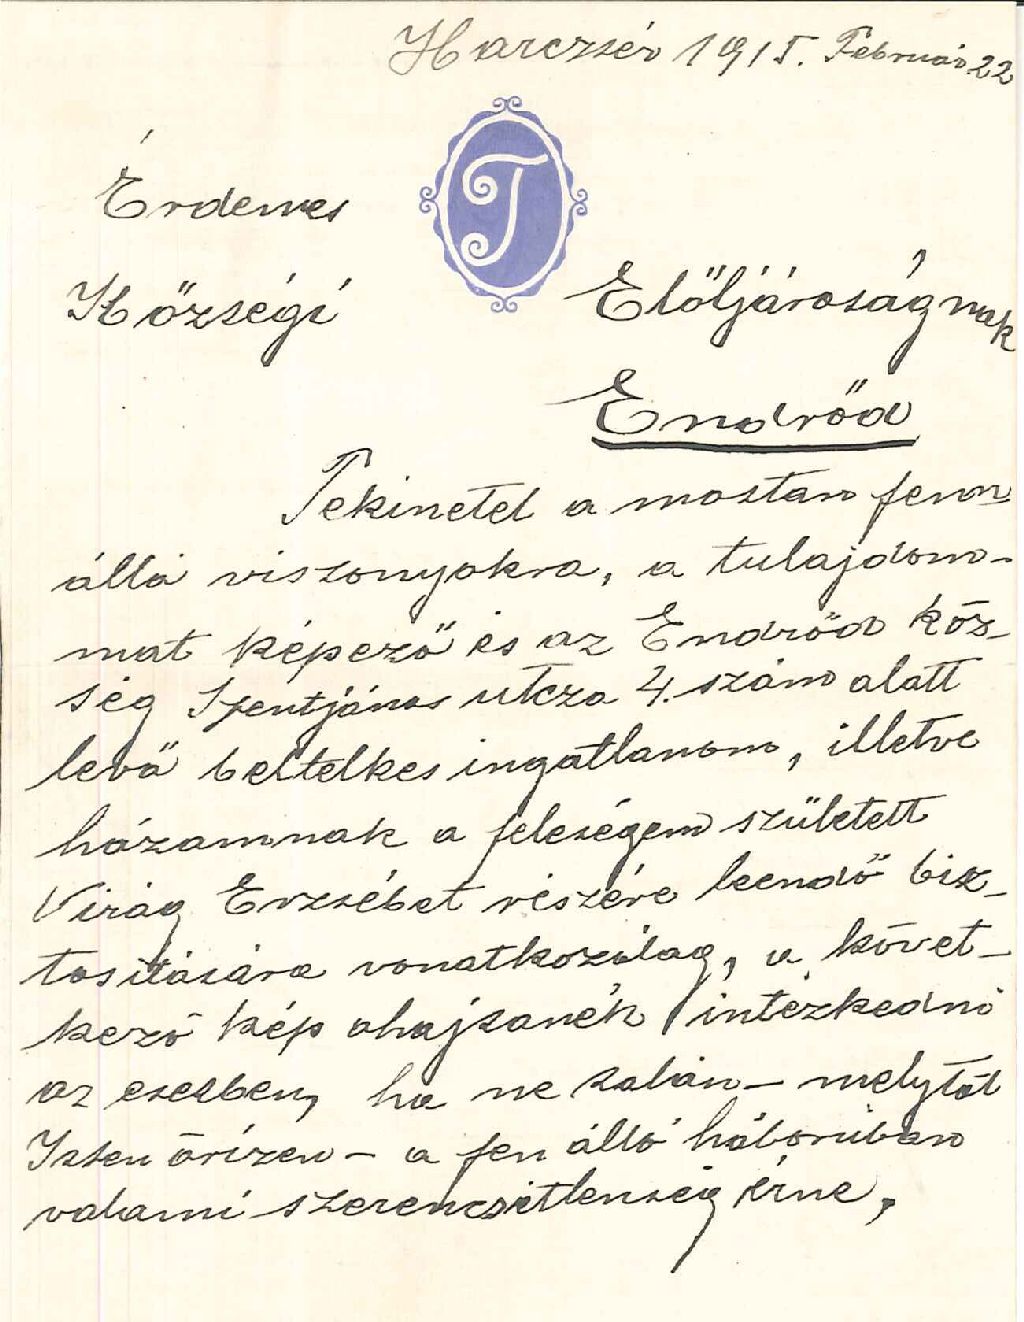 Harczsér 1915. Február 22
T
Érdemes
Községi Elöljáróságnak
Endrőd
Tekinetel a mostan fenn
álló viszonyokra, a tulajdom-
mat képező és az Endrőd köz-
ség Szentjános utcza 4. szám alatt
levő beltelkes ingatlanom, illetve
házamnak a feleségem született
Virág Erzsébet részére leendő biz-
tosítására vonatkozólag, a követ-
kező kép ohajtanék intézkedni
az esetben, ha ne talán - melytől
Isten őrizen - a fen álló háborúban
valami szerencsétlenség érne,